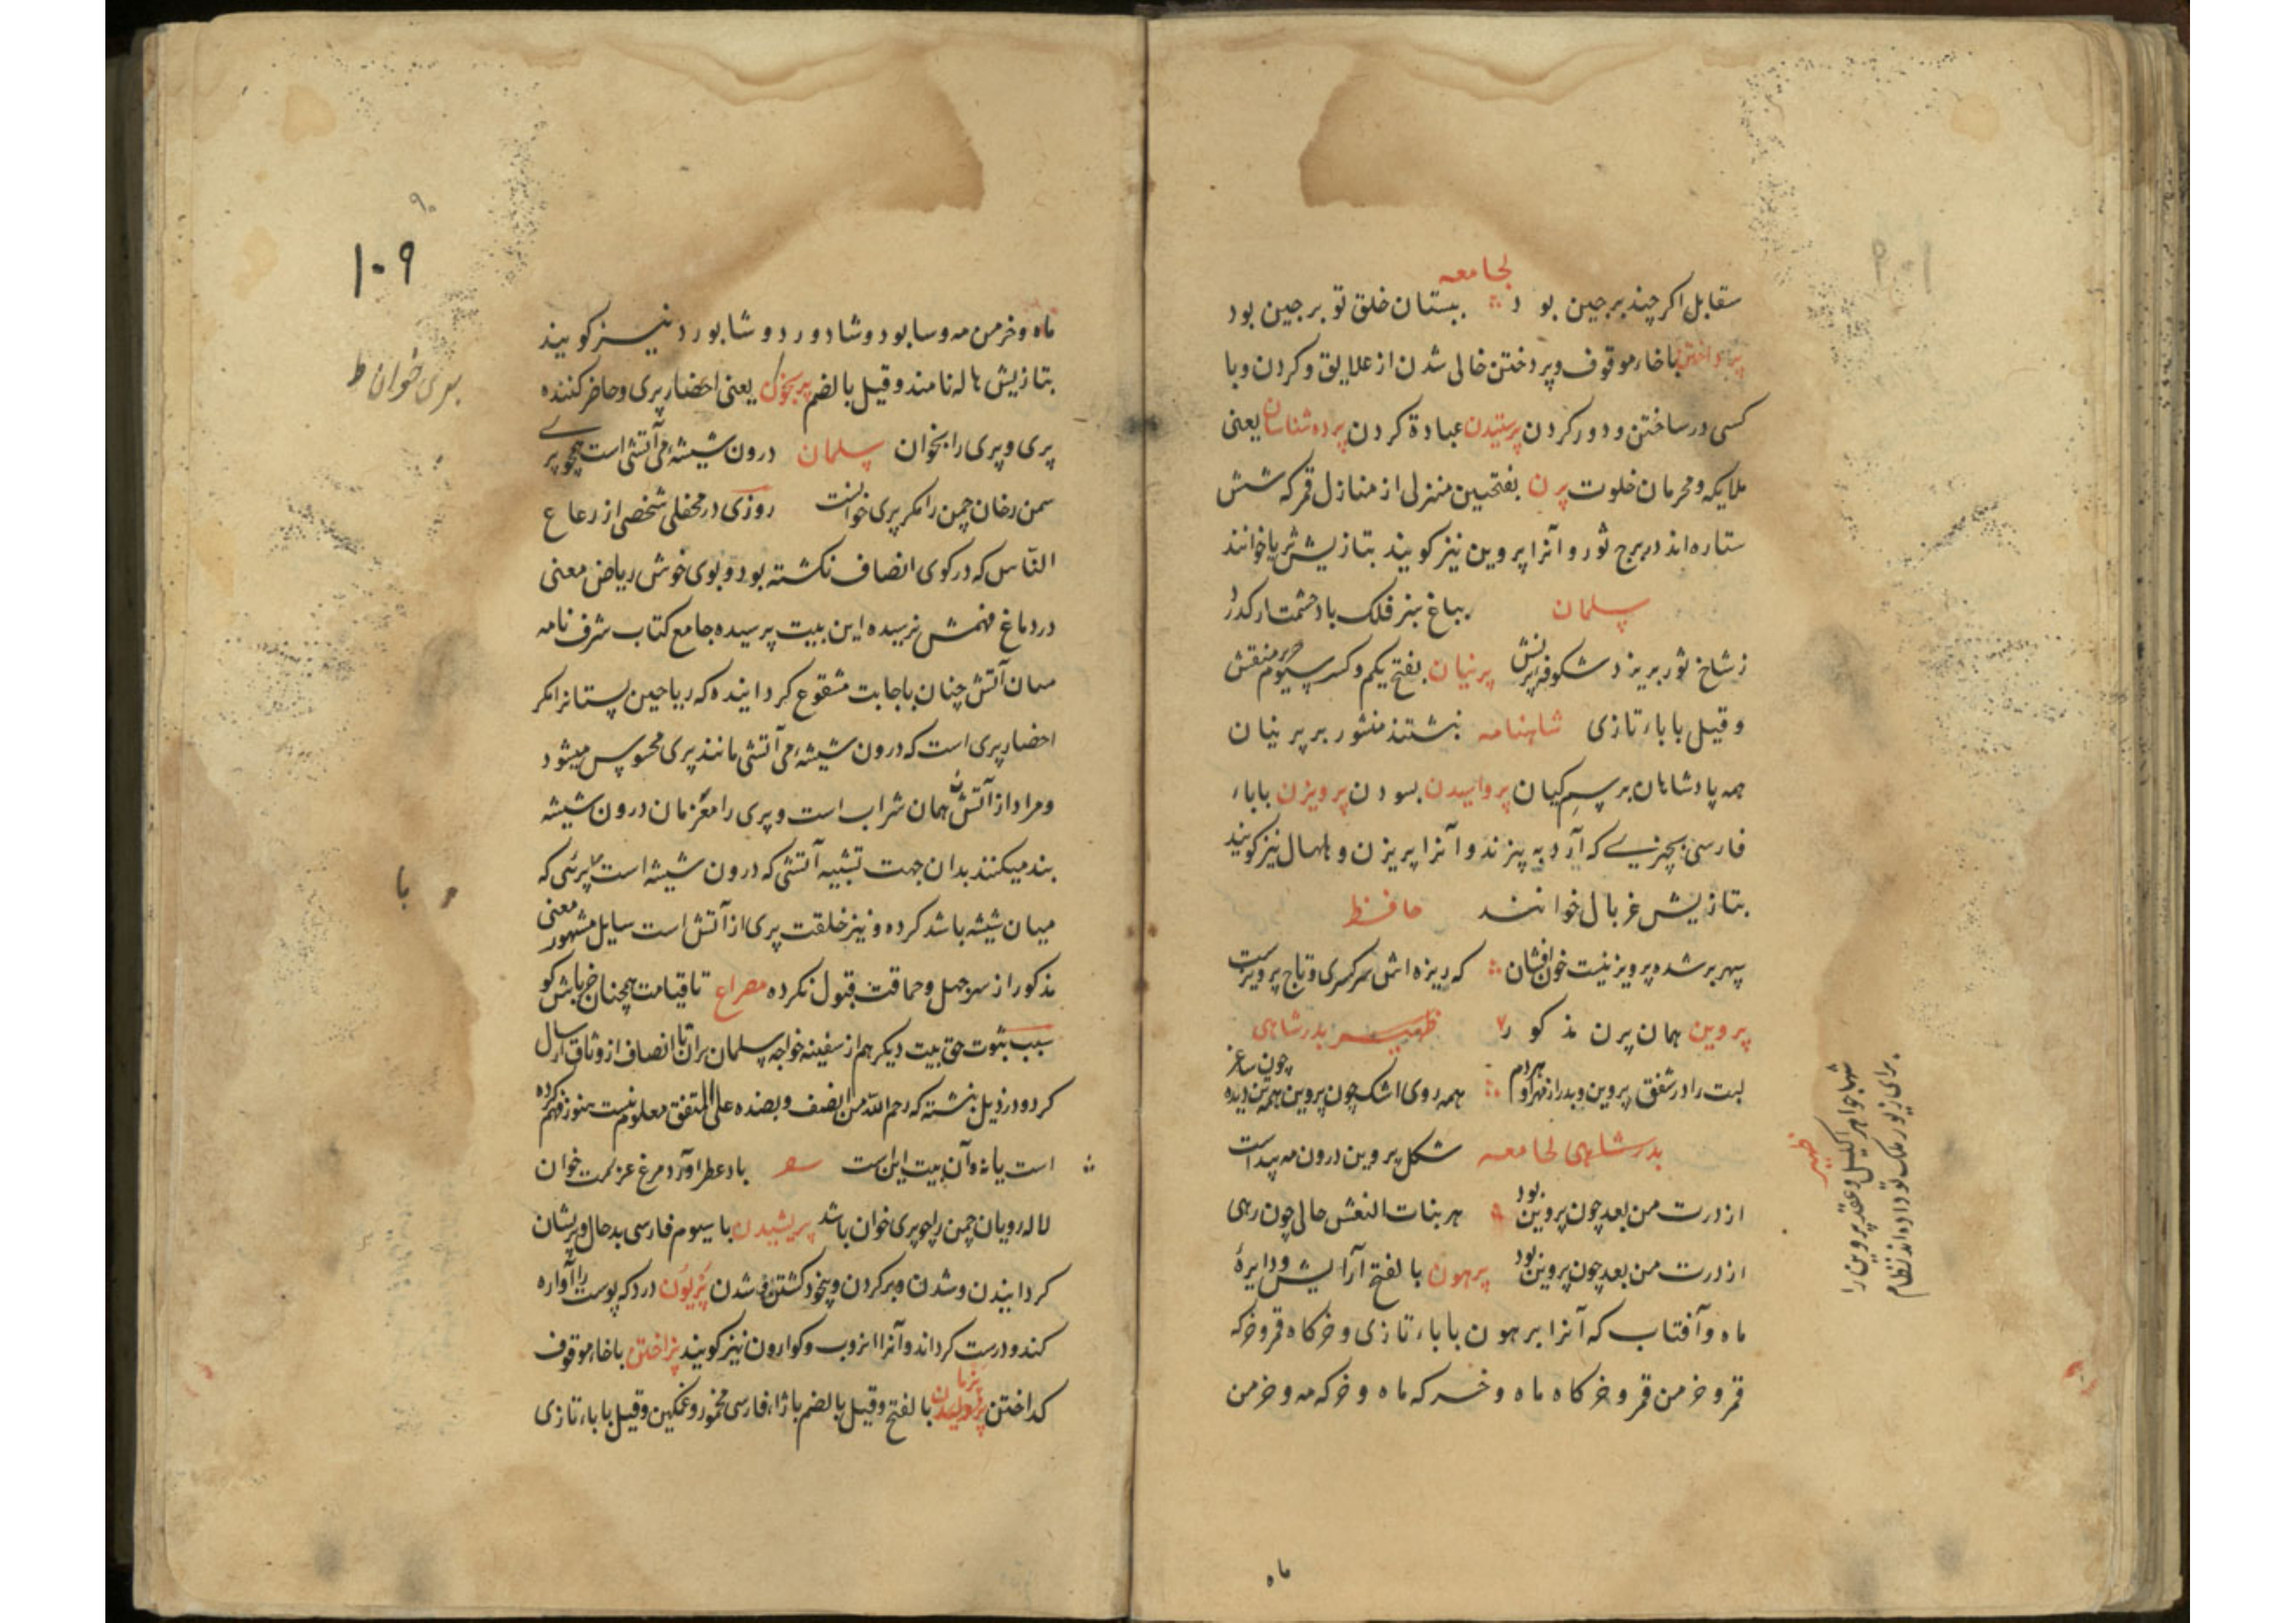 لجامعه
سقابل اکر چند برجین بو د ببستان خلق تو برجین بود
پرداختن باخاء موقوف و پردختن خالی شدن از علایق و کردن و با
کسی در ساختن و دور کردن پرستیدن عبادة کردن پرده شناسان یعنی
ملایکه و محرمان خلوت پرن بفتحیین منزلی از منازل قمر که شش
ستاره اند در برج ثور و آنرا پروین نیز کویند بتازیش ثریا خوانند
سلمان بباغ سبز فلک باد حشمتت ار کذرد
ز شاخ ثور بریزد شکوفهٔ پرنش پرنیان بفتح یکم و کسر سیوم حریر منقش
و قیل با باء تازی شاهنامه نبشتند منشور بر پرنیان
همه پادشاهان برسم کیان پرواسیدن بسودن پرویزن با باء
فارسی بچیزے که آرد به پیزند و آنرا پریزن و ماهال نیز کویند
بتازیش غربال خوانند حافظ
سپهر برشده پرویزنیست خون افشان که ریزه اش سر کسری و تاج پرویزست
پروین همان پرن مذکور ظهیر بدرشاهی
لبت را در شفق پروین و بدر از مهر او هر دم همه روی اشک چون پروین همه تن دیده چون ساغر
بدرشاهی لجامعه شکل پروین درون مه پیداست
از درت من بعد چون پروین بود هر بنات النعش حالی چون رهی
از درت من بعد چون پروین بود پرهون بالفتح آرایش و دایرهٔ
ماه و آفتاب که آنرا برهون با باء تازی و خرکاه قمر و خرکه
قمر و خرمن قمر و خرکاه ماه و خرکه ماه و خرکه مه و خرمن
ماه
ظهیر
شها جواهر اکلیل و عقد پروین را
برای زیور ملک تو داده اند نظام
۱۰۹
۹۰
پری خوان ط
ماه و خرمن مه و سابود و شادورد و شابورد نیز کویند
بتازیش هاله نامند و قیل بالضم پریخوان یعنی احضار پری و حاضر کننده
پری و پری را بخوان سلمان درون شیشهٔ می آتشی است همچو پرے
سمن رخان چمن را مکر پری خوانست روزی در محفلی شخصی از رعاع
الناس که در کوی انصاف نکشته بود و بوی خوش ریاض معنی
در دماغ فهمش نرسیده این بیت پرسیده جامع کتاب شرف نامه
میان آتش چنان باجابت مشقوع کردانیده که ریاحین بستانرا مکر
احضار پری است که درون شیشهٔ می آتشی مانند پری محسوس میشود
و مراد از آتش همان شراب است و پری را معزمان درون شیشه
بند میکنند بدان جهت تشبیه آتشی که درون شیشه است بپریئی که
میان شیشه باشد کرده و نیز خلقت پری از آتش است سایل مشهور معنی
مذکور از سر جهل و حماقت قبول نکرده مصراع تا قیامت همچنان خر باش کو
سبب ثبوت حق بیت دیکر هم از سفینه خواجه سلمان بران نا انصاف از وثاق ارسال
کرد و در ذیل نبشته که رحم الله من انصف و بصنده علی المتفق معلوم نیست هنوز فهم کرده
است یا نه و آن بیت این ست باد عطر آورد مرغ عزیمت خوان
لاله رویان چمن را چو پری خوان باشد پریشیدن با سیوم فارسی بدحال و پریشان
کردانیدن و شدن و بر کردن و بیخود کشتن و شدن پزیون درد که پوست را آواره
کند و درست کرداند و آنرا انزوب و کوارون نیز کویند پزاختن باخاء موقوف
کداختن پژولیدن بالفتح و قیل بالضم با ژاء فارسی مخمور و غمکین و قیل با باء تازی
با